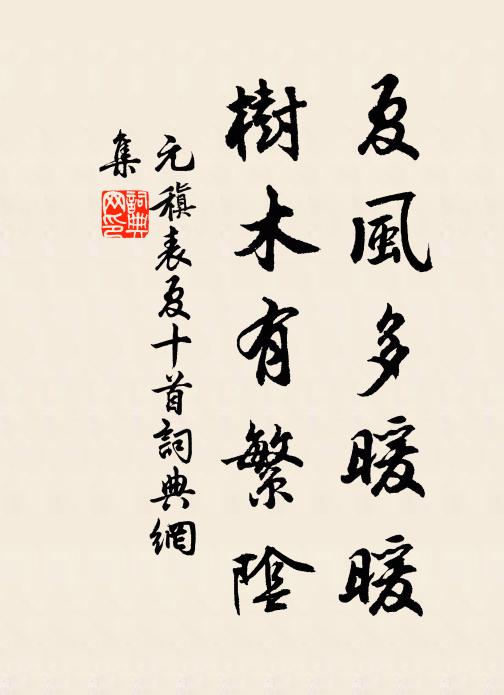 夏風多暖暖
樹木有繁陰
元稹表夏十首詞典網
集
詞典網印